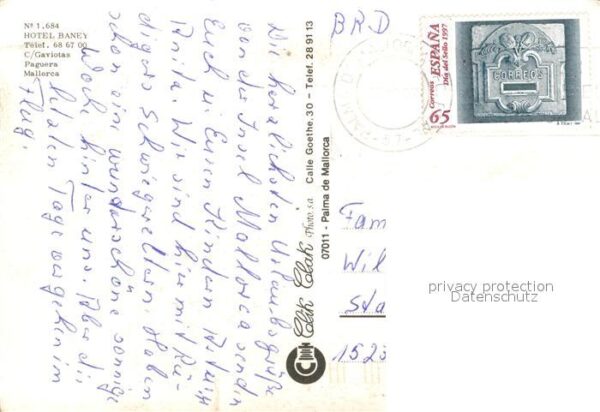 Nº 1.684
HOTEL BANEY
Télef. 68 67 00
C/Gaviotas
Paguera
Mallorca
Die herzlichsten Urlaubsgrüße
von der Insel Mallorca senden
Euch u. Euren Kindern
Anita. Wir sind hier mit Rü-
digers Schwiegereltern. Haben
schon eine wunderschöne sonnige
Woche hinter uns. Aber die
Tage vergehen im
Flug.
Clik Clak Photo, s.a.
07011 - Palma de Mallorca
Calle Goethe, 30 - Telef. 28 91 13
BRD
Correos ESPAÑA
Día del Sello 1997
CORREOS
65
Fam
Wil
Sta
1523
privacy protection
Datenschutz